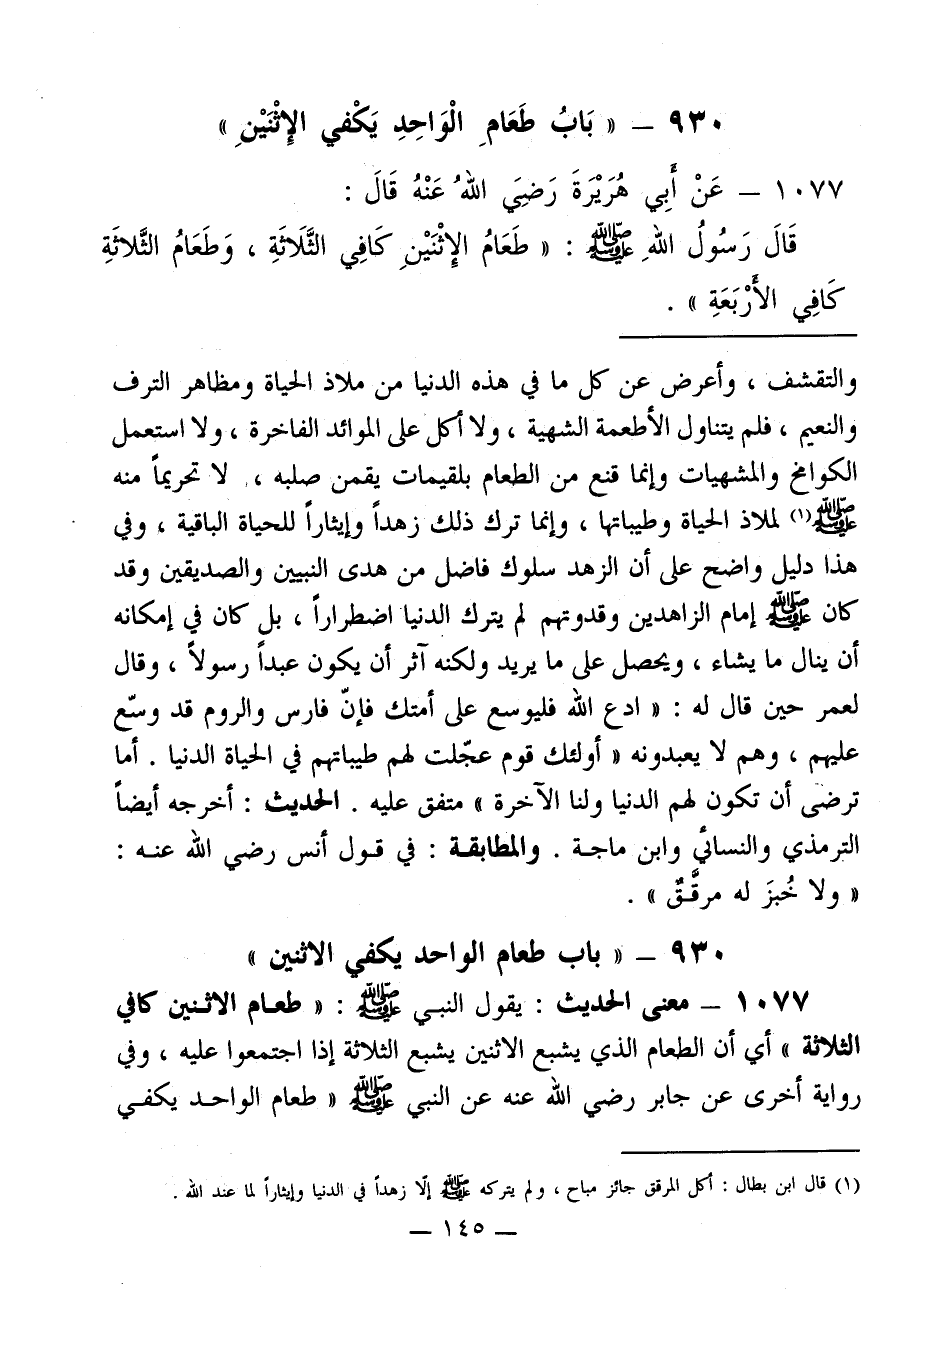 ٩٣٠ – « بَابُ طَعَامِ الْوَاحِدِ يَكْفي الإِثْنَيْنِ »
١٠٧٧ – عَنْ أَبِي هُرَيْرَةَ رَضِيَ اللهُ عَنْهُ قَالَ :
قَالَ رَسُولُ اللهِ ﷺ : « طَعَامُ الإِثْنَيْنِ كَافِي الثَّلَاثَةِ ، وَطَعَامُ الثَّلاثَةِ
كَافِي الأَرْبَعَةِ » .
والتقشف ، وأعرض عن كل ما في هذه الدنيا من ملاذ الحياة ومظاهر الترف
والنعيم ، فلم يتناول الأطعمة الشهية ، ولا أكل على الموائد الفاخرة ، ولا استعمل
الكوامخ والمشهيات وإنما قنع من الطعام بلقيمات يقمن صلبه ، لا تحريماً منه
ﷺ(١) لملاذ الحياة وطيباتها ، وإنما ترك ذلك زهداً وإيثاراً للحياة الباقية ، وفي
هذا دليل واضح على أن الزهد سلوك فاضل من هدى النبيين والصديقين وقد
كان ﷺ إمام الزاهدين وقدوتهم لم يترك الدنيا اضطراراً ، بل كان في إمكانه
أن ينال ما يشاء ، ويحصل على ما يريد ولكنه آثر أن يكون عبداً رسولاً ، وقال
لعمر حين قال له : « ادع الله فليوسع على أمتك فإنّ فارس والروم قد وسّع
عليهم ، وهم لا يعبدونه « أولئك قوم عجّلت لهم طيباتهم في الحياة الدنيا . أما
ترضى أن تكون لهم الدنيا ولنا الآخرة » متفق عليه . الحديث : أخرجه أيضاً
الترمذي والنسائي وابن ماجة . والمطابقة : في قول أنس رضي الله عنه :
« ولا خُبزَ له مرقَّقٌ » .
٩٣٠ – « باب طعام الواحد يكفي الاثنين »
١٠٧٧ – معنى الحديث : يقول النبي ﷺ : « طعام الاثنين كافي
الثلاثة » أي أن الطعام الذي يشبع الاثنين يشبع الثلاثة إذا اجتمعوا عليه ، وفي
رواية أخرى عن جابر رضي الله عنه عن النبي ﷺ « طعام الواحد يكفي
(١) قال ابن بطال : أكل المرقق جائز مباح ، ولم يتركه ﷺ إلّا زهداً في الدنيا وإيثاراً لما عند الله .
– ١٤٥ –